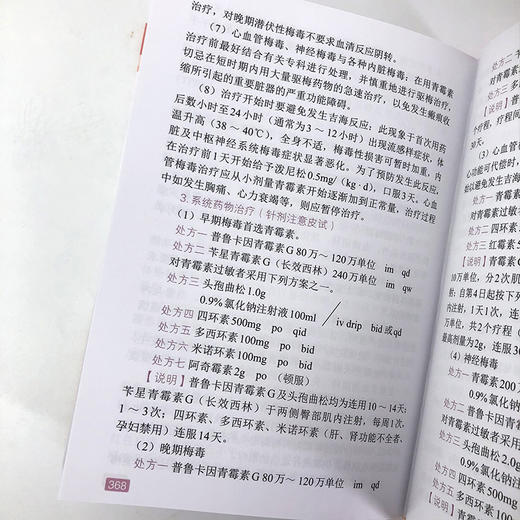 治疗，对晚期潜伏性梅毒不要求血清反应阴转。
（7）心血管梅毒、神经梅毒与各种内脏梅毒：在用青霉素
治疗前最好结合有关专科进行处理，并慎重地进行驱梅治疗，
切忌在短时期内用大量驱梅药物的急速治疗，以免发生瘢痕收
缩所引起的重要脏器的严重功能障碍。
（8）治疗开始时要避免发生吉海反应：此现象于首次用药
后数小时至24小时（通常为3～12小时）出现流感样症状，体
温升高（38～40℃），全身不适，梅毒性损害可暂时加重，内
脏及中枢神经系统梅毒症状显著恶化。为了预防发生此反应，
在治疗前1天开始给予泼尼松0.5mg/（kg·d），口服3天。心血
管梅毒治疗应从小剂量青霉素开始逐渐加到正常量，治疗过程
中如发生胸痛、心力衰竭等，则应暂停治疗。
3.系统药物治疗（针剂注意皮试）
（1）早期梅毒首选青霉素。
处方一 普鲁卡因青霉素G 80万～120万单位 im qd
处方二 苄星青霉素G（长效西林）240万单位 im qw
对青霉素过敏者采用下列方案之一。
处方三 头孢曲松1.0g
0.9%氯化钠注射液100ml / iv drip bid或qd
处方四 四环素500mg po qid
处方五 多西环素100mg po bid
处方六 米诺环素100mg po bid
处方七 阿奇霉素2g po （顿服）
【说明】普鲁卡因青霉素G及头孢曲松均为连用10～14天；
苄星青霉素G（长效西林）于两侧臀部肌内注射，每周1次，
1～3次；四环素、多西环素、米诺环素（肝、肾功能不全者、
孕妇禁用）连服14天。
（2）晚期梅毒
处方一 普鲁卡因青霉素G 80万～120万单位 im qd
368
处方二 苄
对青霉素
处方三 多
【说明】
个疗程，疗程间
30天。
（3）心血
心功能可代偿时，
始以避免发生吉
处方一 青
处方二 普
对青霉素过
处方三 四
处方四 多
处方五 红霉素5
【说明】
10万单位，分2次肌
射；自第4日起按下
1天1次，连
万单位，共2个疗程（
最高剂量为2g，连服30
（4）神经梅毒
处方一 青霉素200
处方二 普鲁卡因
处方三 头孢曲松
0.9%氯化钠
【说明】青霉素
处方四 四环素500m
处方五 多西环素